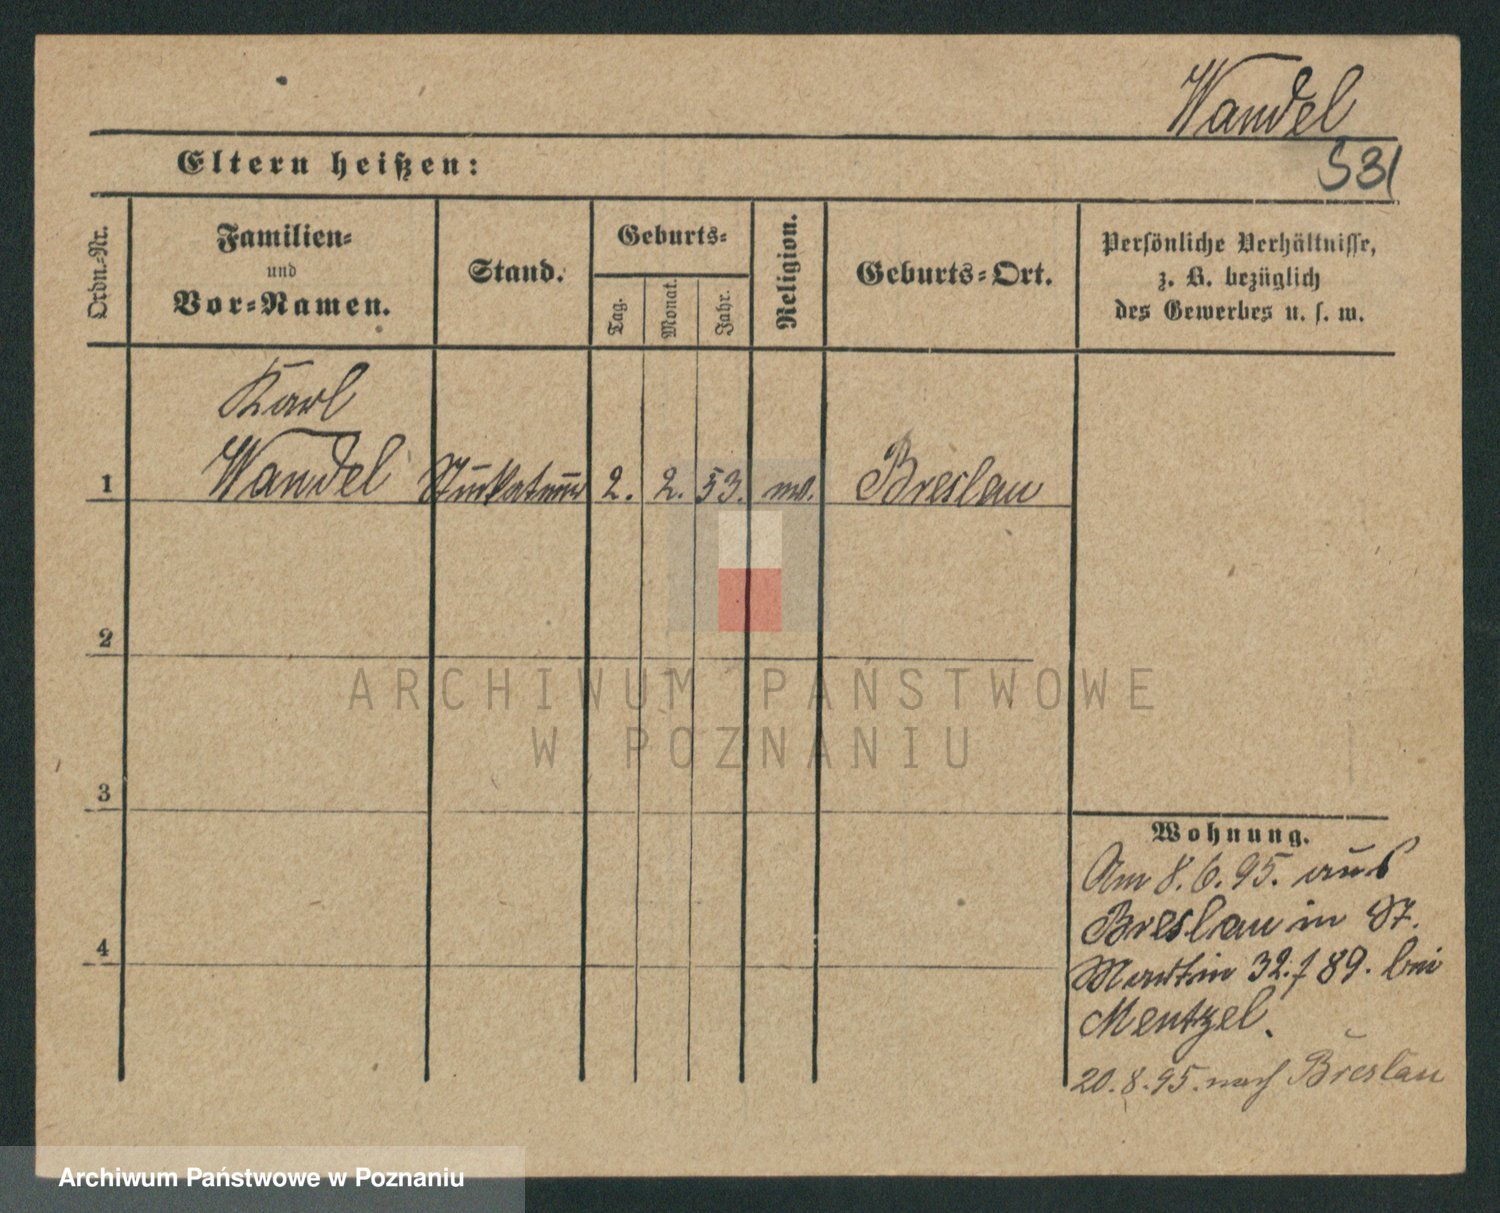 Wandel
531
Eltern heißen:
Ordn.-Nr.
Familien-
und
Vor-Namen.
Stand.
Geburts-
Tag.
Monat.
Jahr.
Religion.
Geburts-Ort.
Persönliche Verhältnisse,
z. B. bezüglich
des Gewerbes u. s. w.
Karl
1 Wandel Stuckateur 2. 2. 53. Breslau
2
3
4
ARCHIWUM PAŃSTWOWE
W POZNANIU
Wohnung.
Am 8.6.95. aus
Breslau in St.
Martin 32./89. bei
Mentzel.
20.8.95. nach Breslau
Archiwum Państwowe w Poznaniu